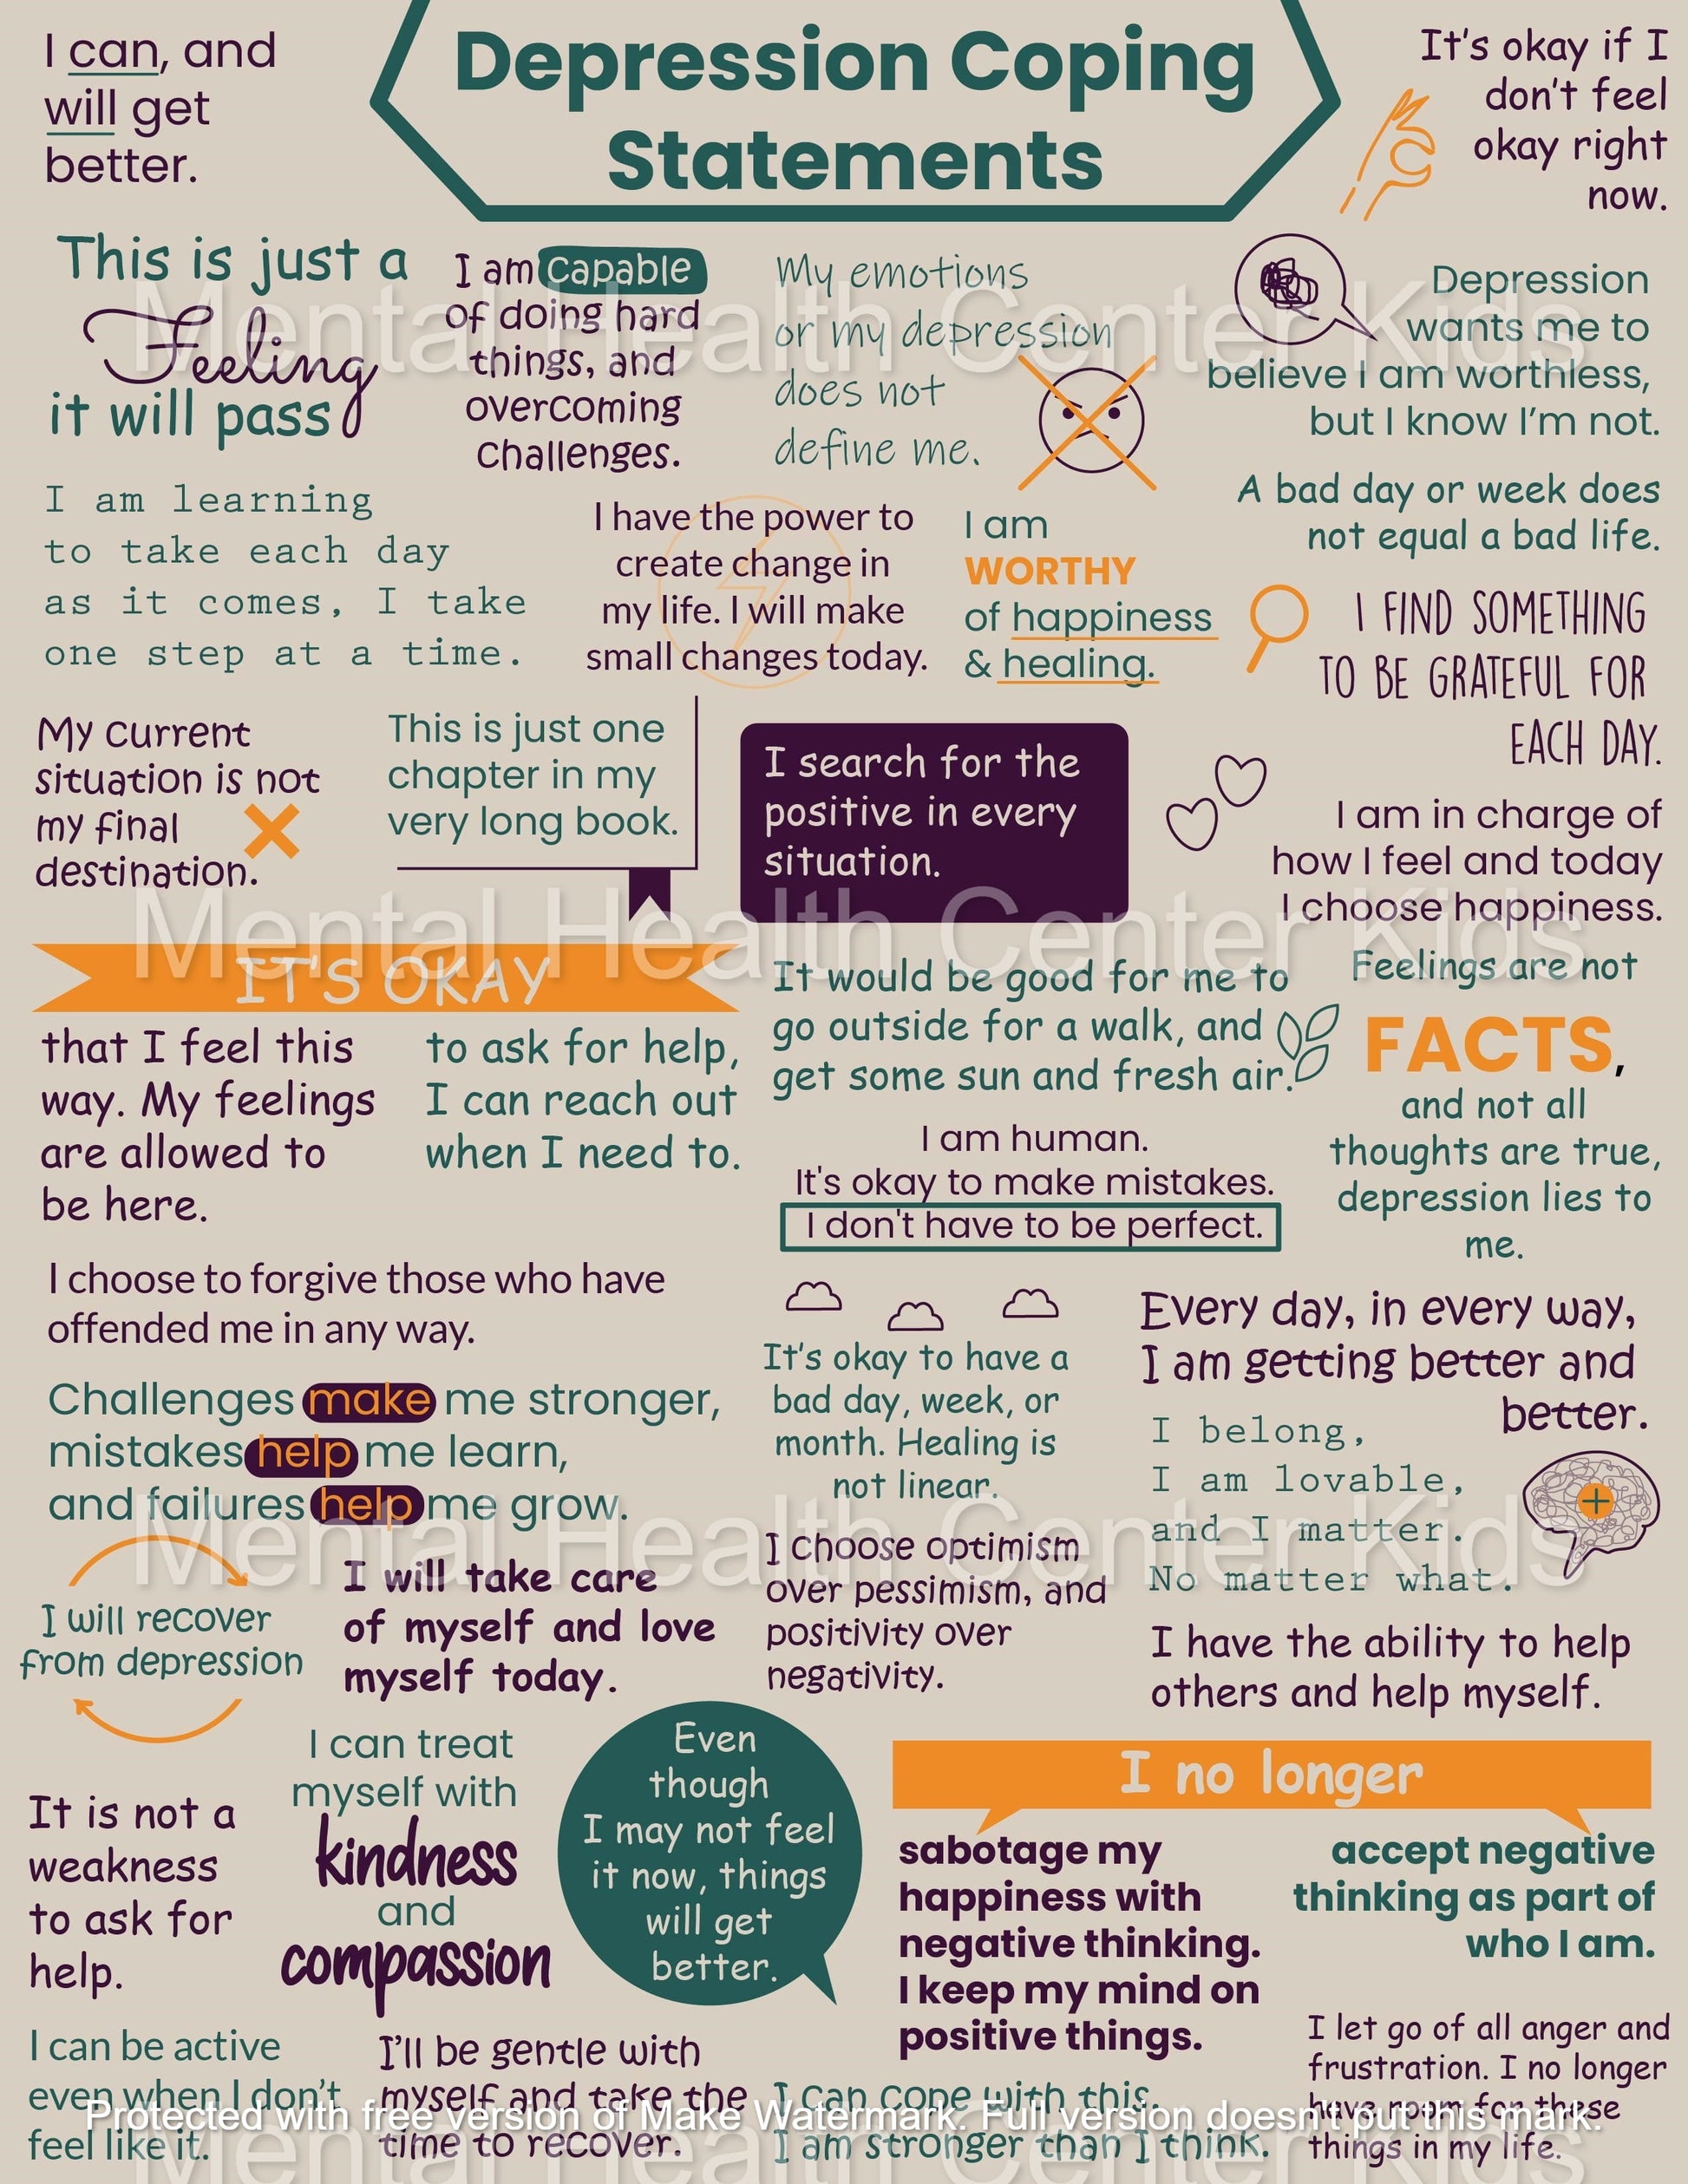 I can, and
will get
better.
Depression Coping
Statements
It's okay if I
don't feel
okay right
now.
This is just a
Feeling
it will pass
I am capable
of doing hard
things, and
overcoming
challenges.
My emotions
or my depression
does not
define me.
Depression
wants me to
believe I am worthless,
but I know I'm not.
Mental Health Center Kids
I am learning
to take each day
as it comes, I take
one step at a time.
I have the power to
create change in
my life. I will make
small changes today.
I am
WORTHY
of happiness
& healing.
A bad day or week does
not equal a bad life.
I FIND SOMETHING
TO BE GRATEFUL FOR
EACH DAY.
My current
situation is not
my final
destination.
This is just one
chapter in my
very long book.
I search for the
positive in every
situation.
I am in charge of
how I feel and today
I choose happiness.
Mental Health Center Kids
IT'S OKAY
that I feel this
way. My feelings
are allowed to
be here.
to ask for help,
I can reach out
when I need to.
It would be good for me to
go outside for a walk, and
get some sun and fresh air.
Feelings are not
FACTS,
and not all
thoughts are true,
depression lies to
me.
I am human.
It's okay to make mistakes.
I don't have to be perfect.
I choose to forgive those who have
offended me in any way.
Challenges make me stronger,
mistakes help me learn,
and failures help me grow.
It's okay to have a
bad day, week, or
month. Healing is
not linear.
Every day, in every way,
I am getting better and
better.
I belong,
I am lovable,
and I matter.
No matter what.
Mental Health Center Kids
I will recover
from depression
I will take care
of myself and love
myself today.
I choose optimism
over pessimism, and
positivity over
negativity.
I have the ability to help
others and help myself.
It is not a
weakness
to ask for
help.
I can treat
myself with
kindness
and
compassion
Even
though
I may not feel
it now, things
will get
better.
I no longer
sabotage my
happiness with
negative thinking.
I keep my mind on
positive things.
accept negative
thinking as part of
who I am.
I can be active
even when I don't
feel like it.
I'll be gentle with
myself and take the
time to recover.
I can cope with this.
I am stronger than I think.
I let go of all anger and
frustration. I no longer
have room for these
things in my life.
Protected with free version of Make Watermark. Full version doesn't put this mark.
Mental Health Center Kids